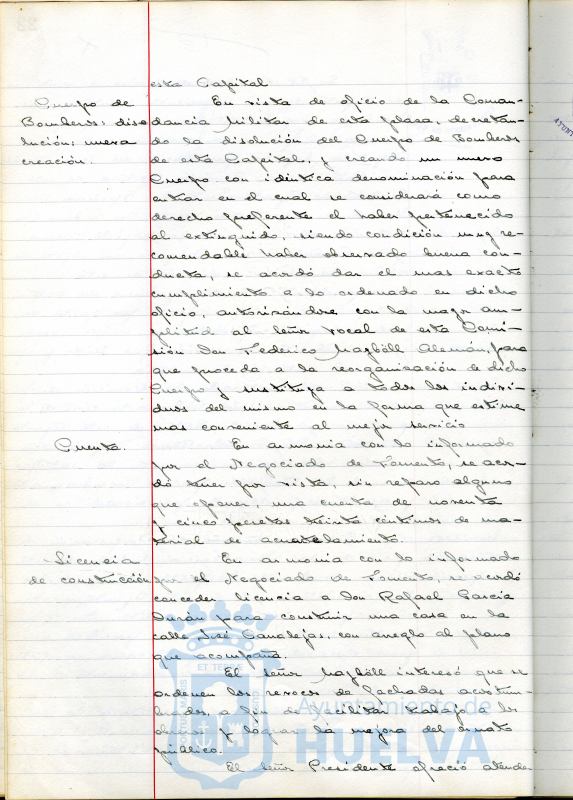 esta Capital
Cuerpo de
Bomberos: diso
lución; nueva
creación.
En vista de oficio de la Coman-
dancia Militar de esta plaza, decretan-
do la disolución del Cuerpo de Bomberos
de esta Capital, y creando un nuevo
Cuerpo con idéntica denominación para
entrar en el cual se considerará como
derecho preferente el haber pertenecido
al extinguido, siendo condición muy re-
comendable haber observado buena con-
ducta, se acordó dar el mas exacto
cumplimiento a lo ordenado en dicho
oficio, autorizándose con la mayor am-
plitud al Señor Vocal de esta Comi-
sión Don Federico Mayböll Alemán, para
que proceda a la reorganización de dicho
Cuerpo y sustituya a todos los indivi-
duos del mismo en la forma que estime
mas conveniente al mejor servicio
Cuenta.
En armonia con lo informado
por el Negociado de Fomento, se acor-
dó tener por vista, sin reparo alguno
que oponer, una cuenta de noventa
y cinco pesetas treinta céntimos de ma-
terial de acuartelamiento.
Licencia
de construcción
En armonia con lo informado
por el Negociado de Fomento, se acordó
conceder licencia a Don Rafael García
Durán para construir una casa en la
calle José Canalejas, con arreglo al plano
que acompaña.
El Señor Mayböll interesó que se
ordenen los revocos de fachadas acostum-
brados, a fin de facilitar trabajo a los
obreros y lograr la mejora del ornato
público.
El Señor Presidente ofreció atender
Ayuntamiento de
HUELVA